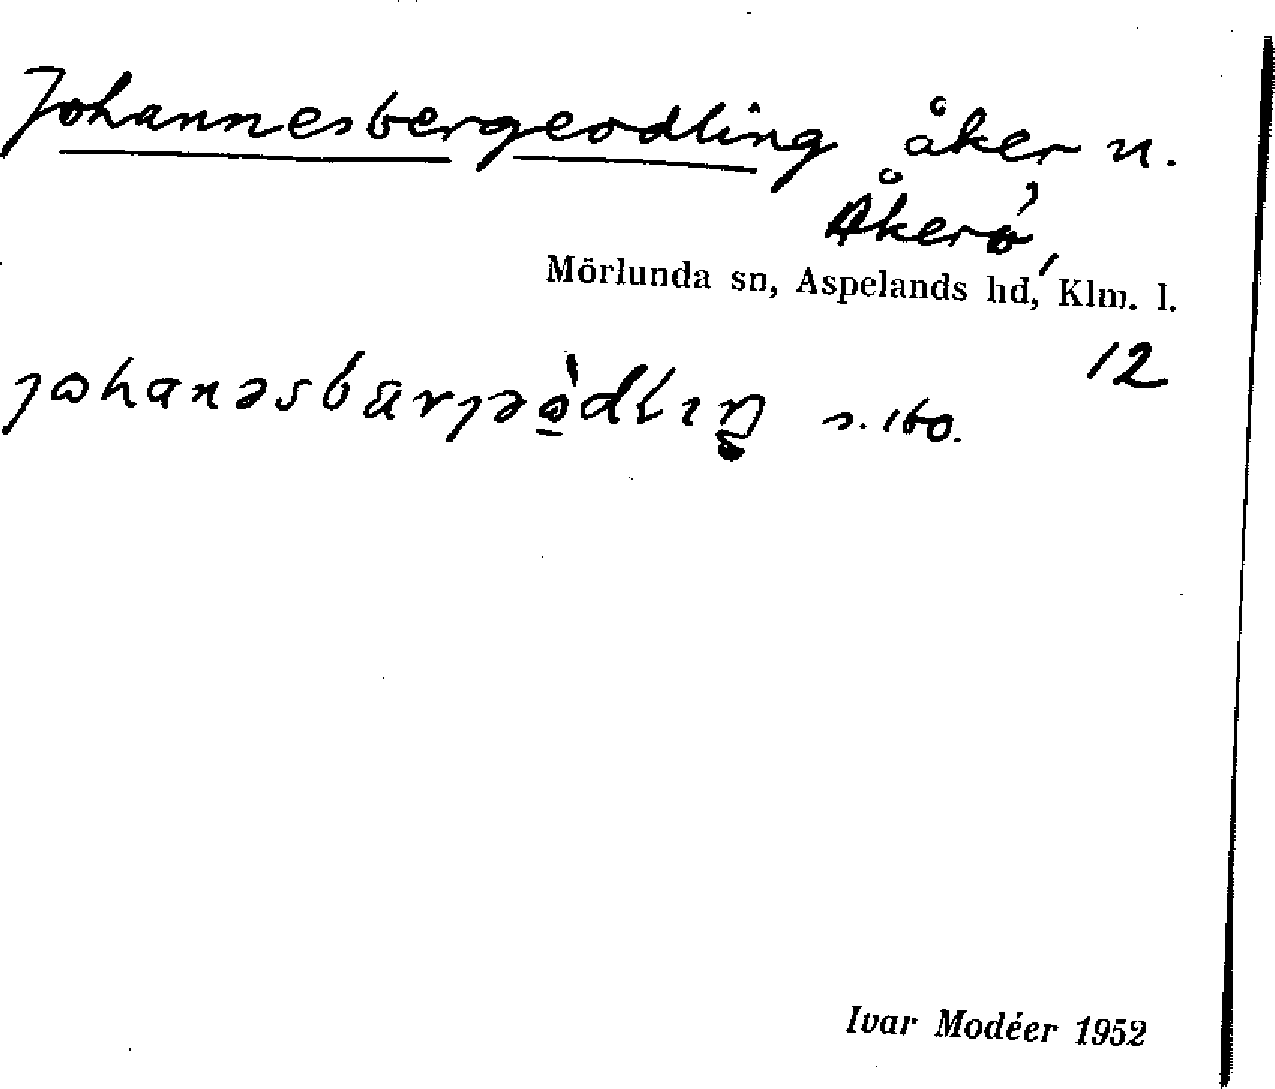 Johannesbergeodling åker n.
Åkerö,
Mörlunda sn, Aspelands hd, Klm. l.
12
s. 160.
Ivar Modéer 1952